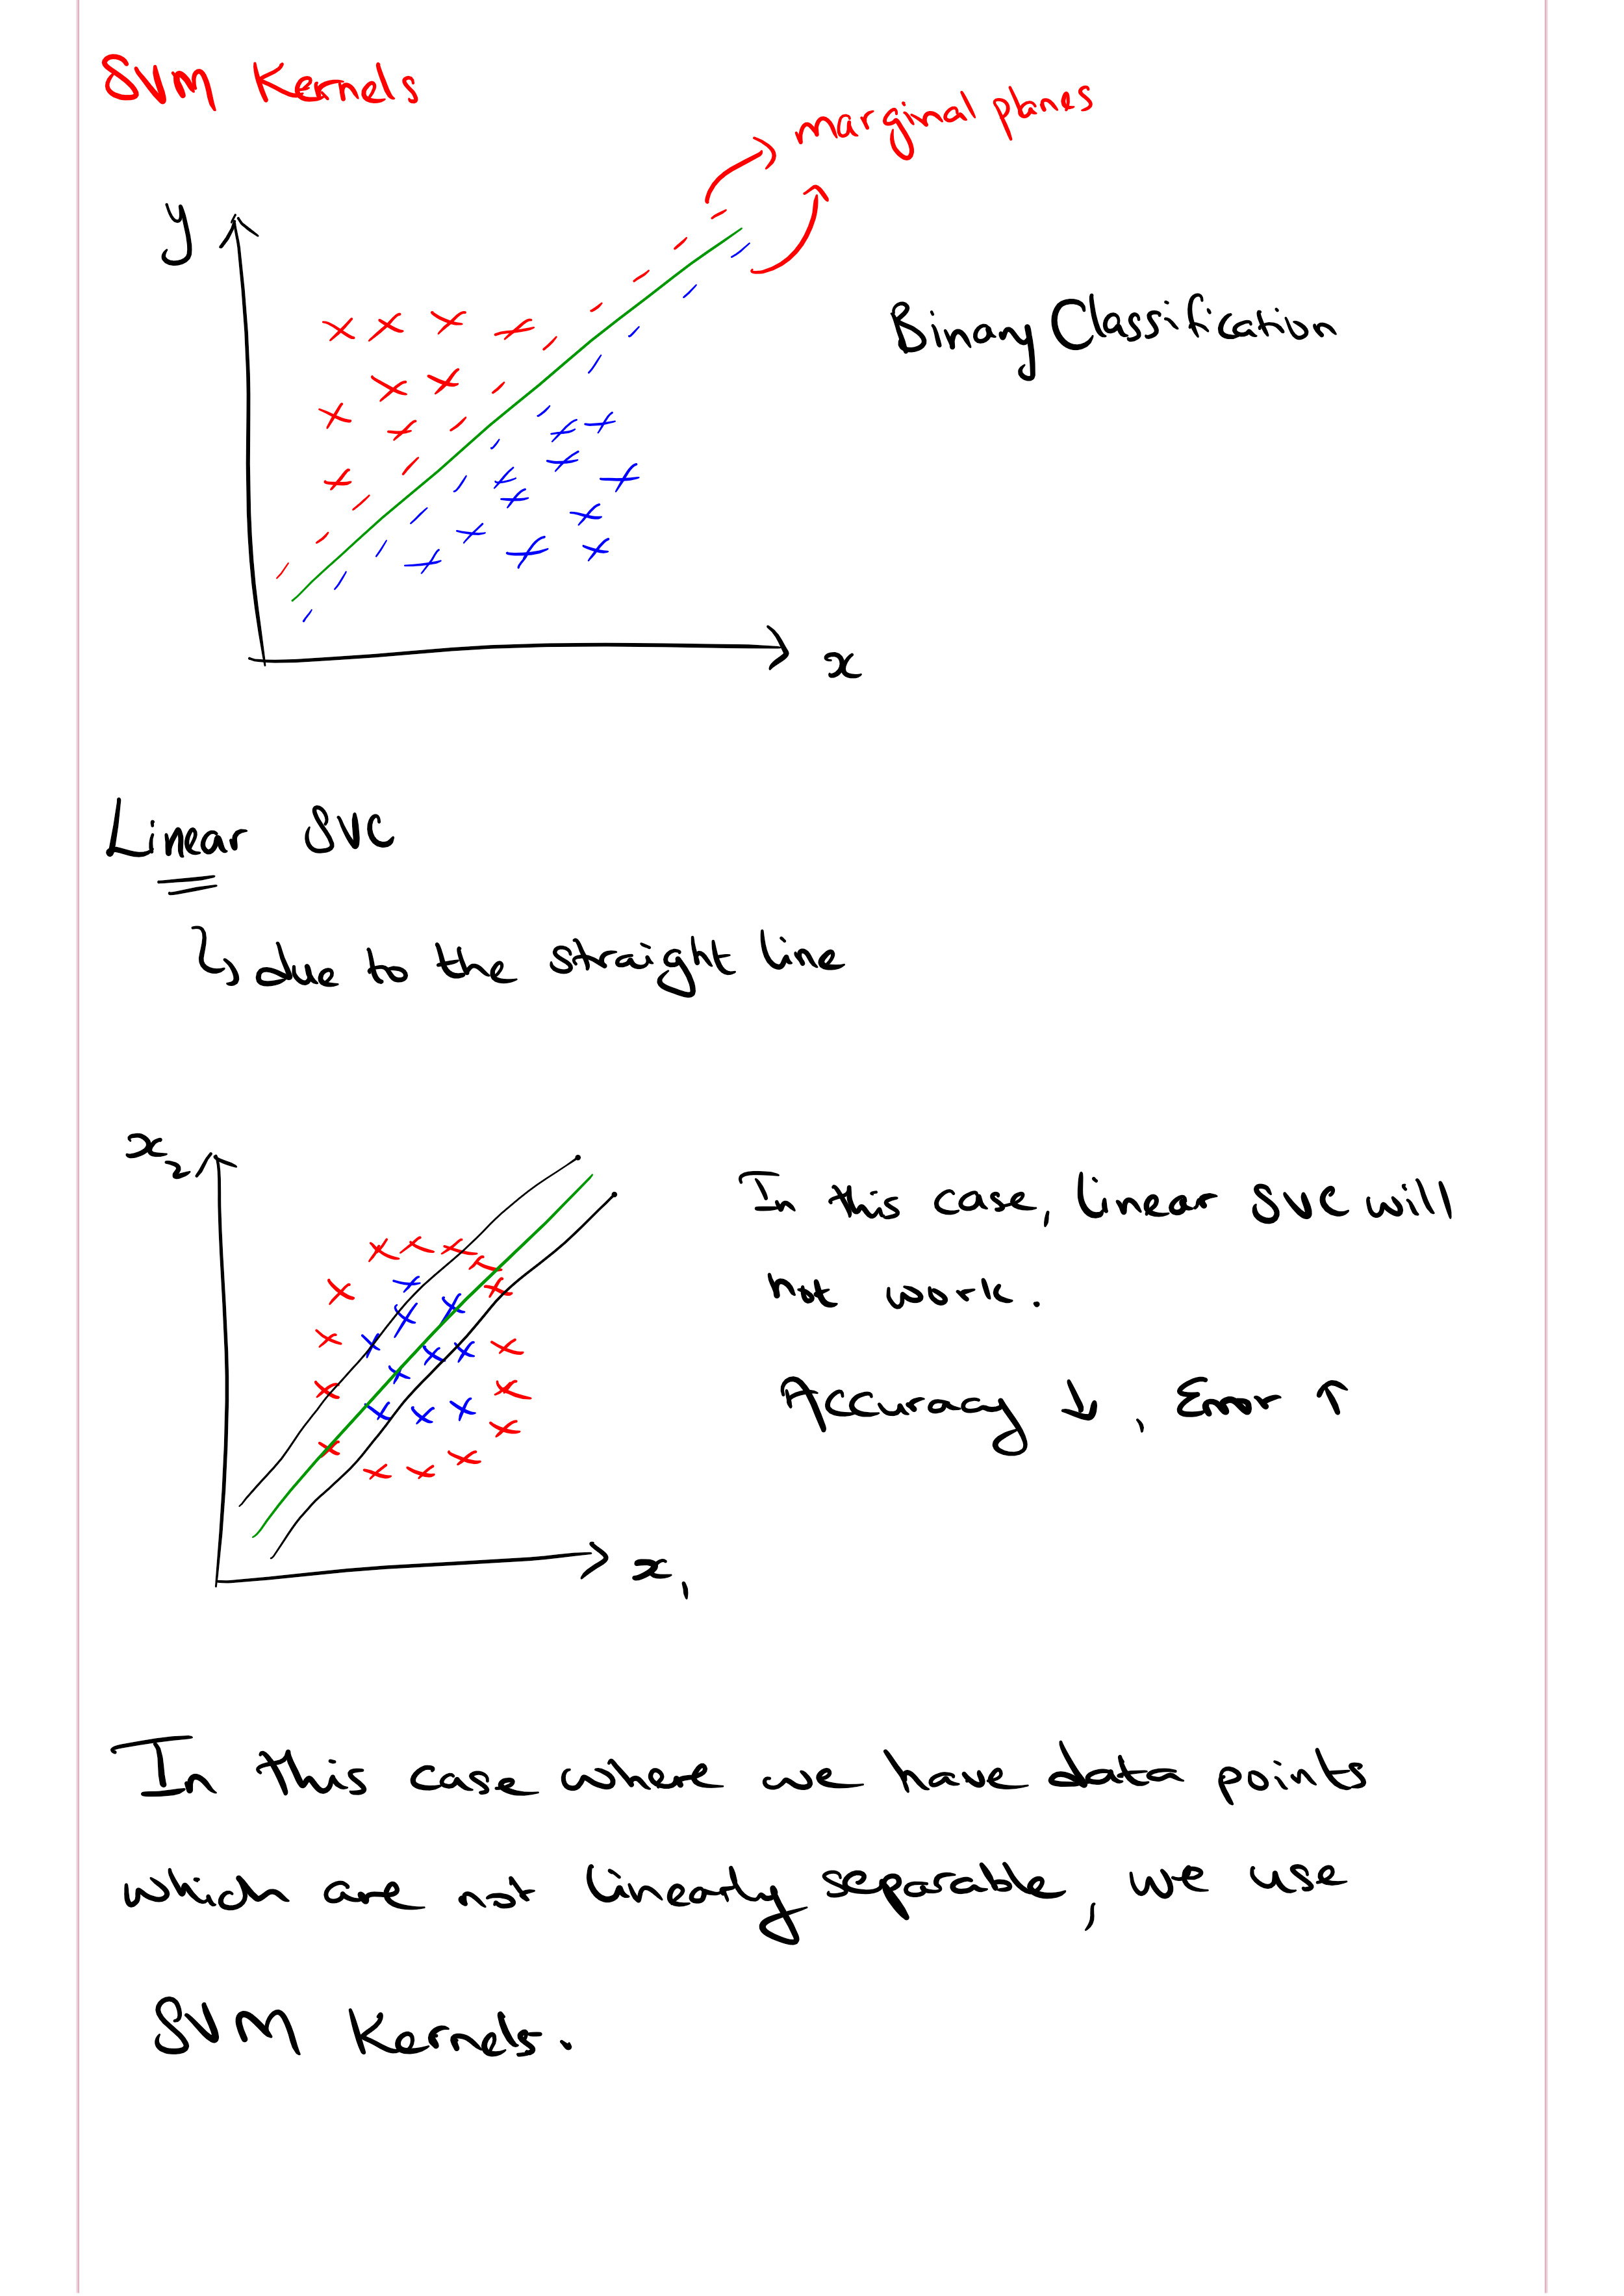 SVM Kernels
marginal planes
y
Binary Classification
x
Linear SVC
↳ due to the straight line
x₂
In this case, linear SVC will
not work.
Accuracy ↓, Error ↑
x₁
In this case where we have data points
which are not linearly separable, we use
SVM Kernels.